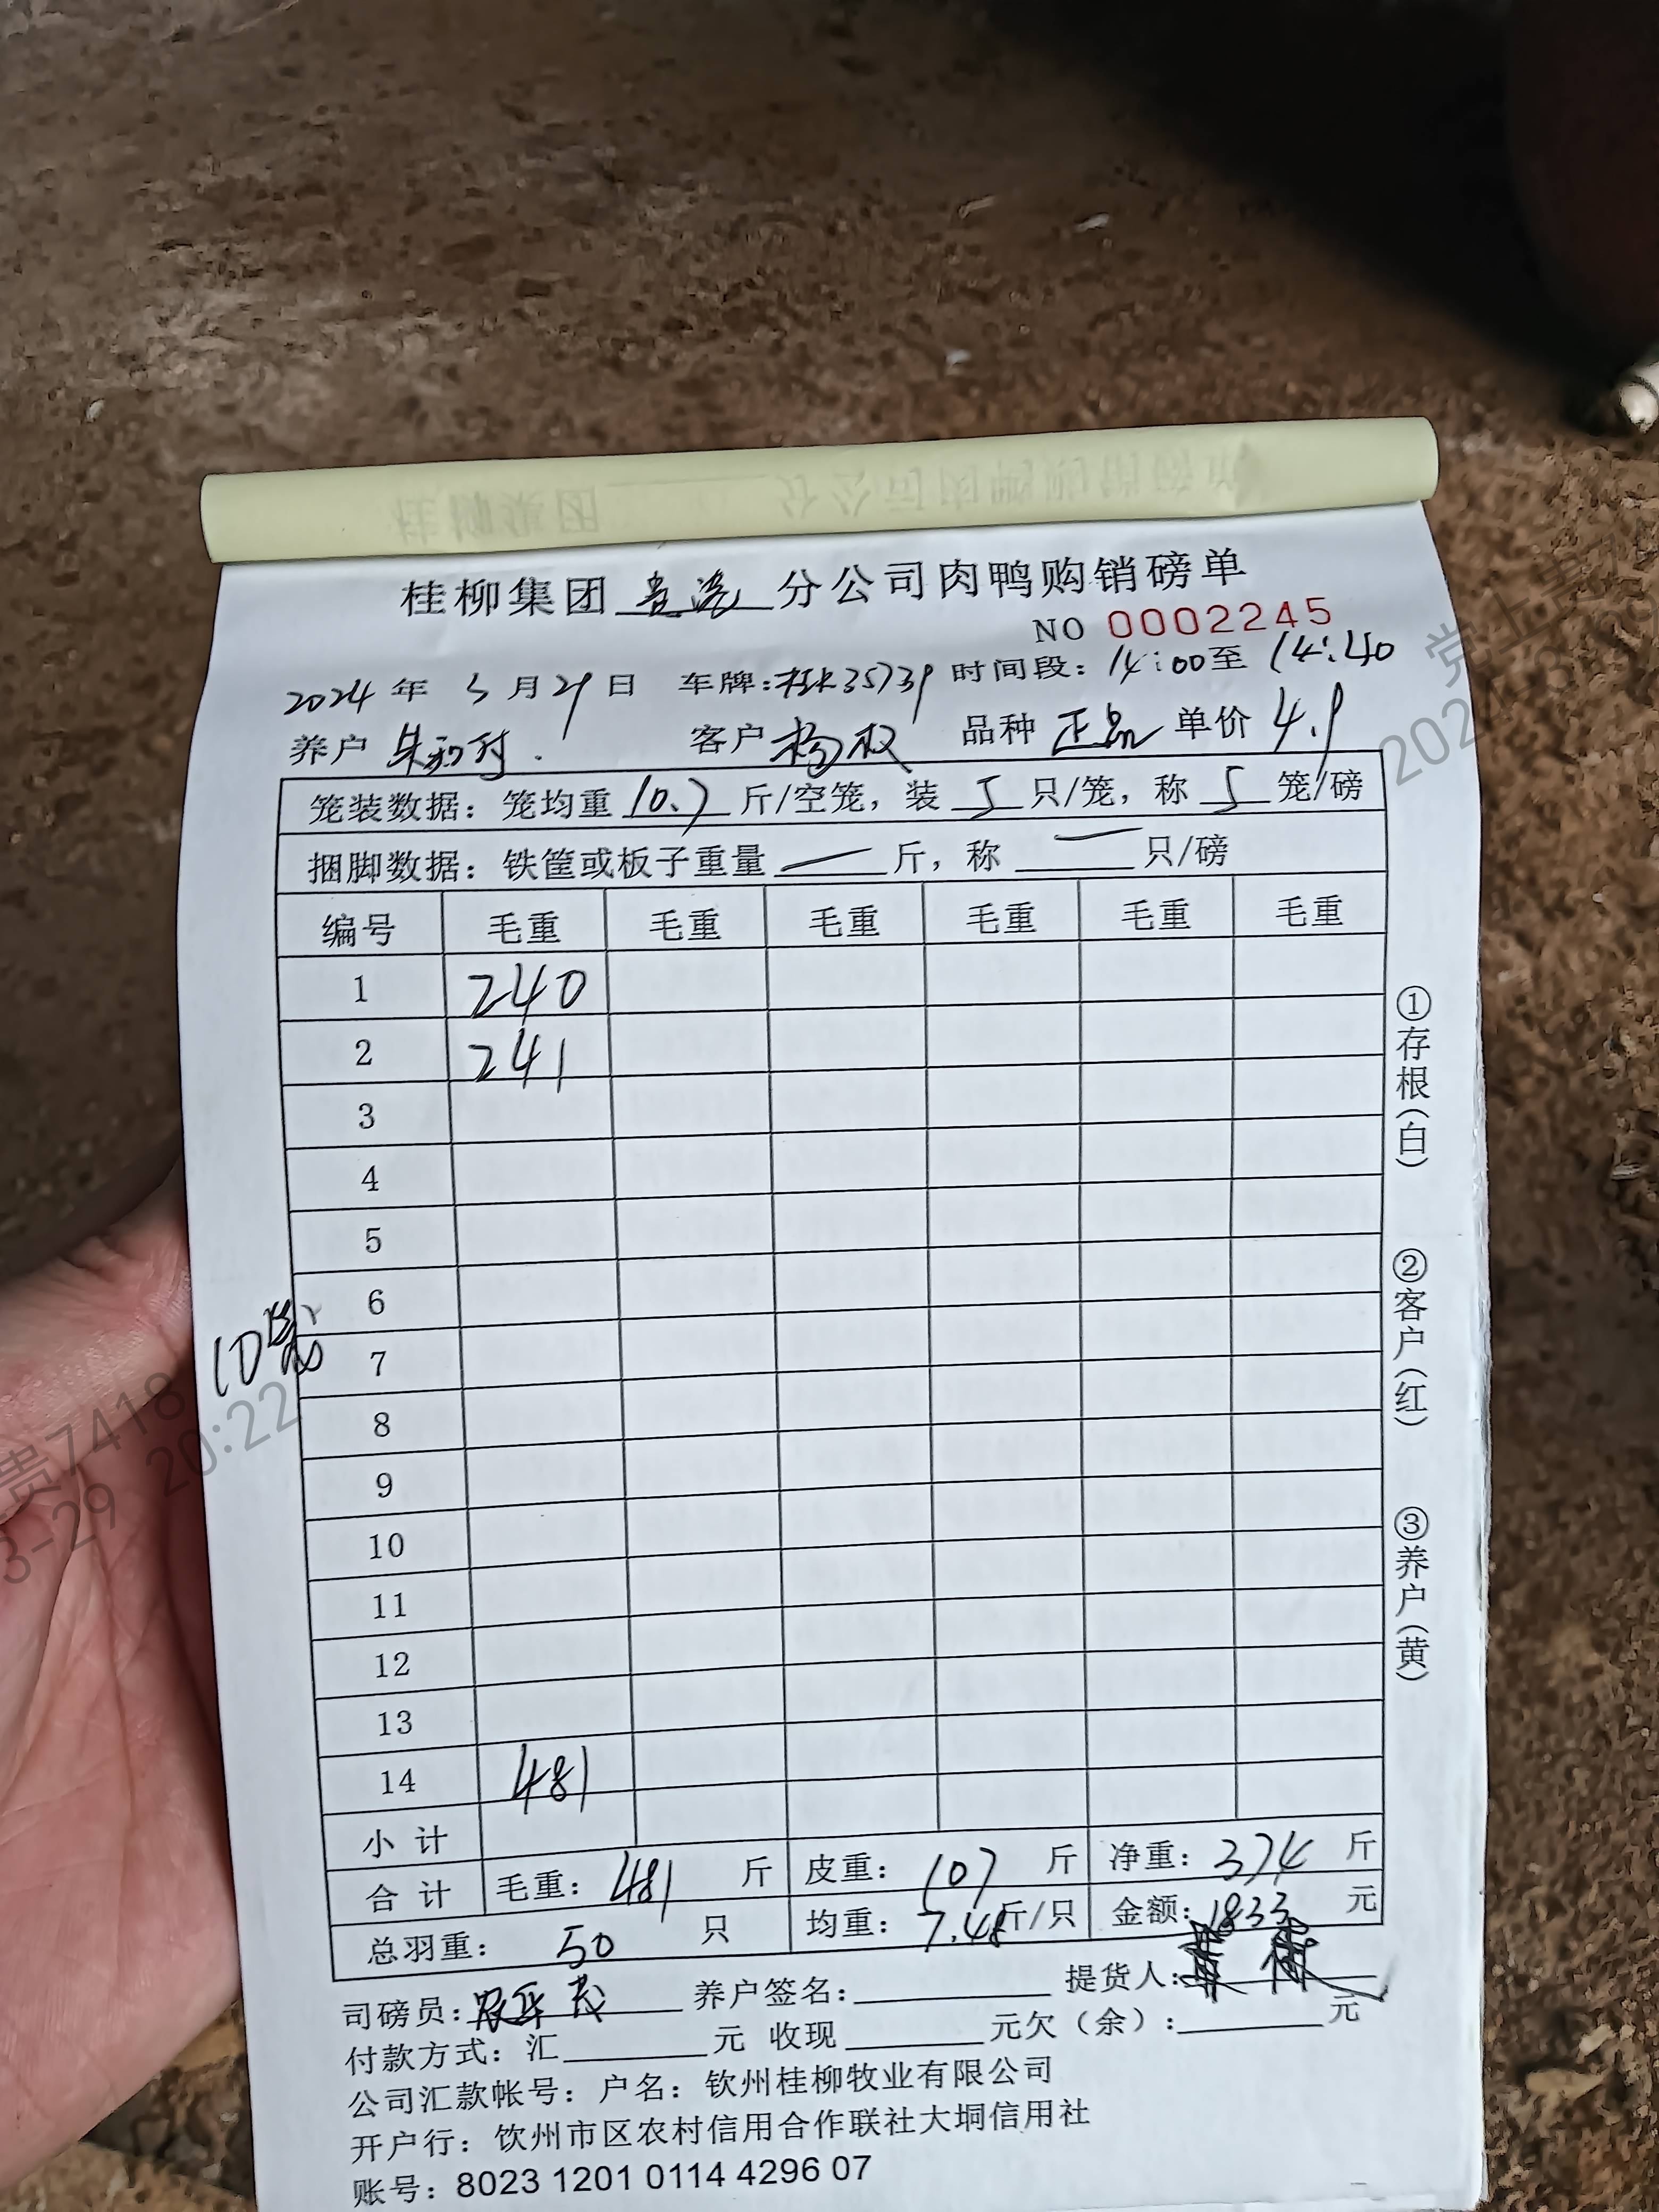 桂柳集团 贵港 分公司肉鸭购销磅单
NO 0002245
2024 年 3 月 29 日 车牌: 时间段: 14:00 至 14:40
养户 客户 杨权 品种 正品 单价 4.9
笼装数据: 笼均重 10.7 斤/空笼, 装 5 只/笼, 称 5 笼/磅
捆脚数据: 铁筐或板子重量 — 斤, 称 — 只/磅
编号 毛重 毛重 毛重 毛重 毛重 毛重
1 240
2 241
3
4
5
6
10笼
7
8
9
10
11
12
13
14 481
小计
合计 毛重: 481 斤 皮重: 107 斤 净重: 374 斤
总羽重: 50 只 均重: 7.48 斤/只 金额: 1833 元
司磅员: 养户签名: 提货人:
付款方式: 汇 元 收现 元欠(余): 元
公司汇款帐号: 户名: 钦州桂柳牧业有限公司
开户行: 钦州市区农村信用合作联社大垌信用社
账号: 8023 1201 0114 4296 07
①存根(白)
②客户(红)
③养户(黄)
贵7418
3-29 20:22